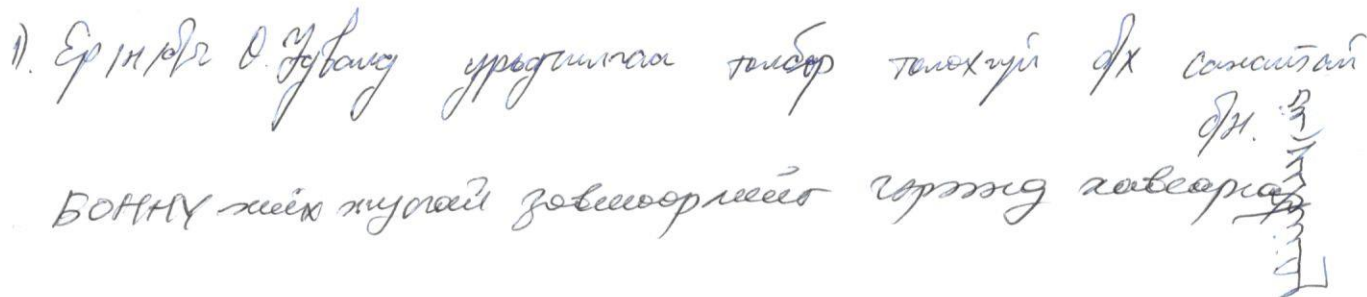 1). Ер/н/бч О.Удвалд урьдчилгаа төлбөр төлөхгүй б/х саналтай
б/н.
БОННУ хийх тухай зөвшөөрлийг гэрээнд хавсарга